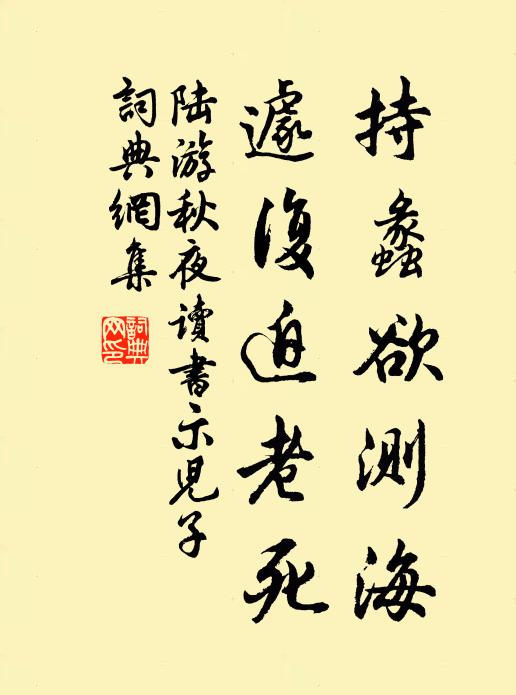 持蠡欲測海
遽復迫老死
陆游秋夜讀書示児子
詞典網集
詞典
网印